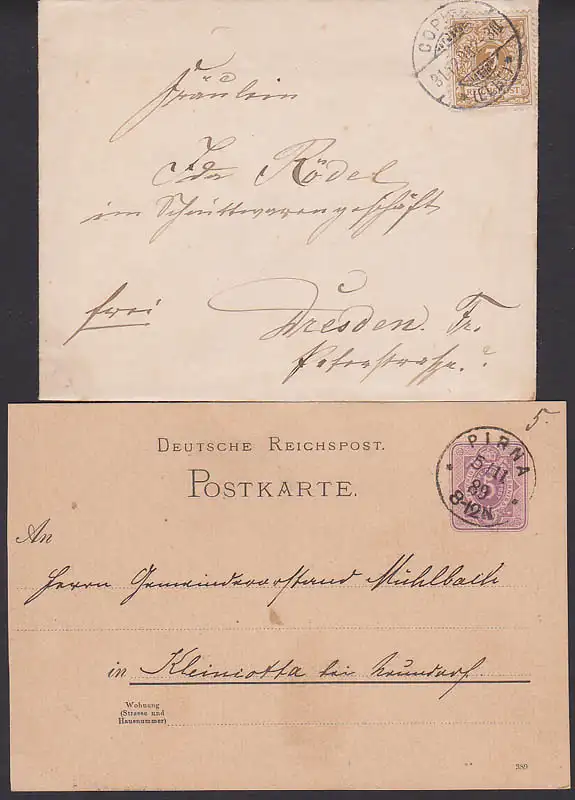 Fräulein
Ida Rödel
im Schnittwarengeschäft
frei
Dresden. Fr.
COP
31.12
(ELBE)
POST
5.
DEUTSCHE REICHSPOST.
POSTKARTE.
PIRNA
5/11
89
8-12N
An
Herrn Gemeindevorstand Mühlbach
in Kleincotta bei Neundorf.
Wohnung
(Strasse und
Hausnummer)
389